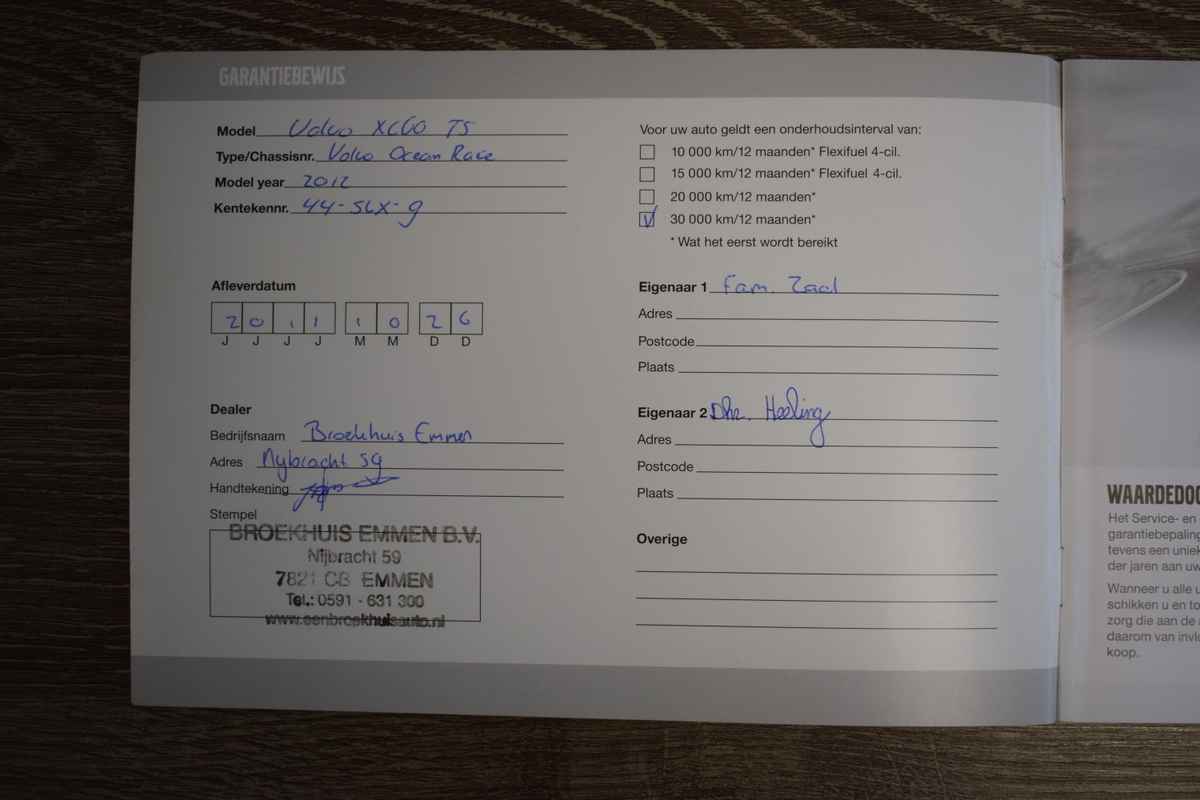 GARANTIEBEWIJS
Model Volvo XC60 T5
Type/Chassisnr. Volvo Ocean Race
Model year 2012
Kentekennr. 44-SLX-9
Afleverdatum
2 0 1 1 1 0 2 6
J J J J M M D D
Dealer
Bedrijfsnaam Broekhuis Emmen
Adres Nybracht 59
Handtekening
Stempel
BROEKHUIS EMMEN B.V.
Nijbracht 59
7821 CB EMMEN
Tel.: 0591 - 631 300
www.eenbroekhuisauto.nl
Voor uw auto geldt een onderhoudsinterval van:
10 000 km/12 maanden* Flexifuel 4-cil.
15 000 km/12 maanden* Flexifuel 4-cil.
20 000 km/12 maanden*
V 30 000 km/12 maanden*
* Wat het eerst wordt bereikt
Eigenaar 1 Fam. Zaal
Adres
Postcode
Plaats
Eigenaar 2 Dhr. Heeling
Adres
Postcode
Plaats
Overige
WAARDEDOC
Het Service- en
garantiebepaling
tevens een uniek
der jaren aan uw
Wanneer u alle u
schikken u en to
zorg die aan de
daarom van invlo
koop.